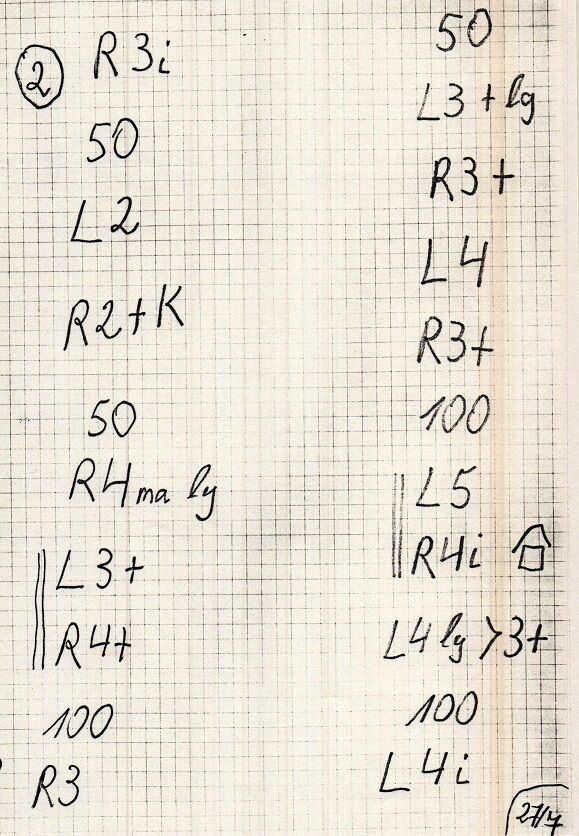 2
R3i
50
L2
R2+K
50
R4ma lg
L3+
R4+
100
R3
50
L3+lg
R3+
L4
R3+
100
L5
R4i
L4lg>3+
100
L4i
27/7